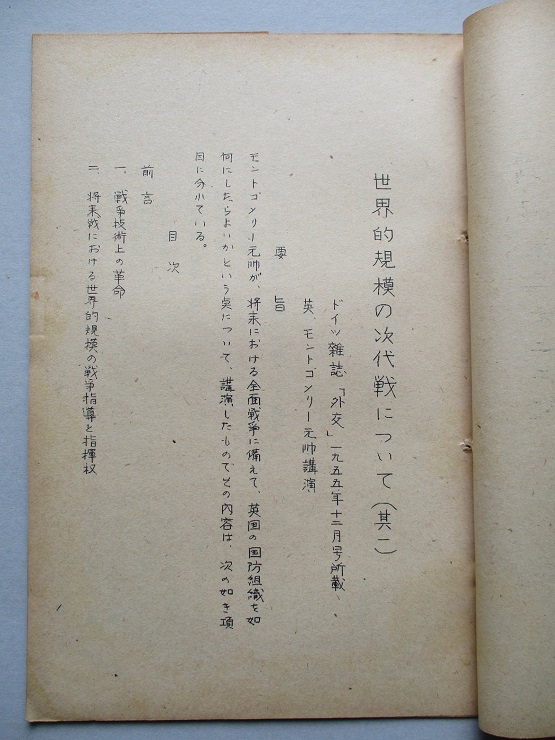 世界的規模の次代戦について(其一)
ドイツ雑誌「外交」一九五五年十二月号所載、
英、モントゴメリー元帥講演
要旨
モントゴメリー元帥が、将来における全面戦争に備えて、英国の国防組織を如
何にしたらよいかという点について、講演したものでその内容は、次の如き項
目に分れている。
目次
前言
一、戦争技術上の革命
二、将来戦における世界的規模の戦争指導と指揮权